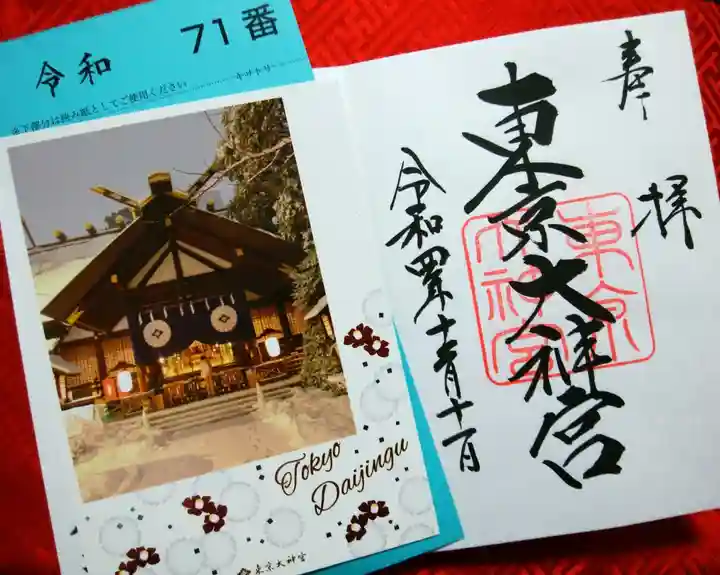 令和 71番
※下部分は挟み紙としてご使用ください ………キリトリ……
Tokyo
Daijingu
東京大神宮
奉拝
東京大神宮
東京
大神宮
令和四年十一月十一日